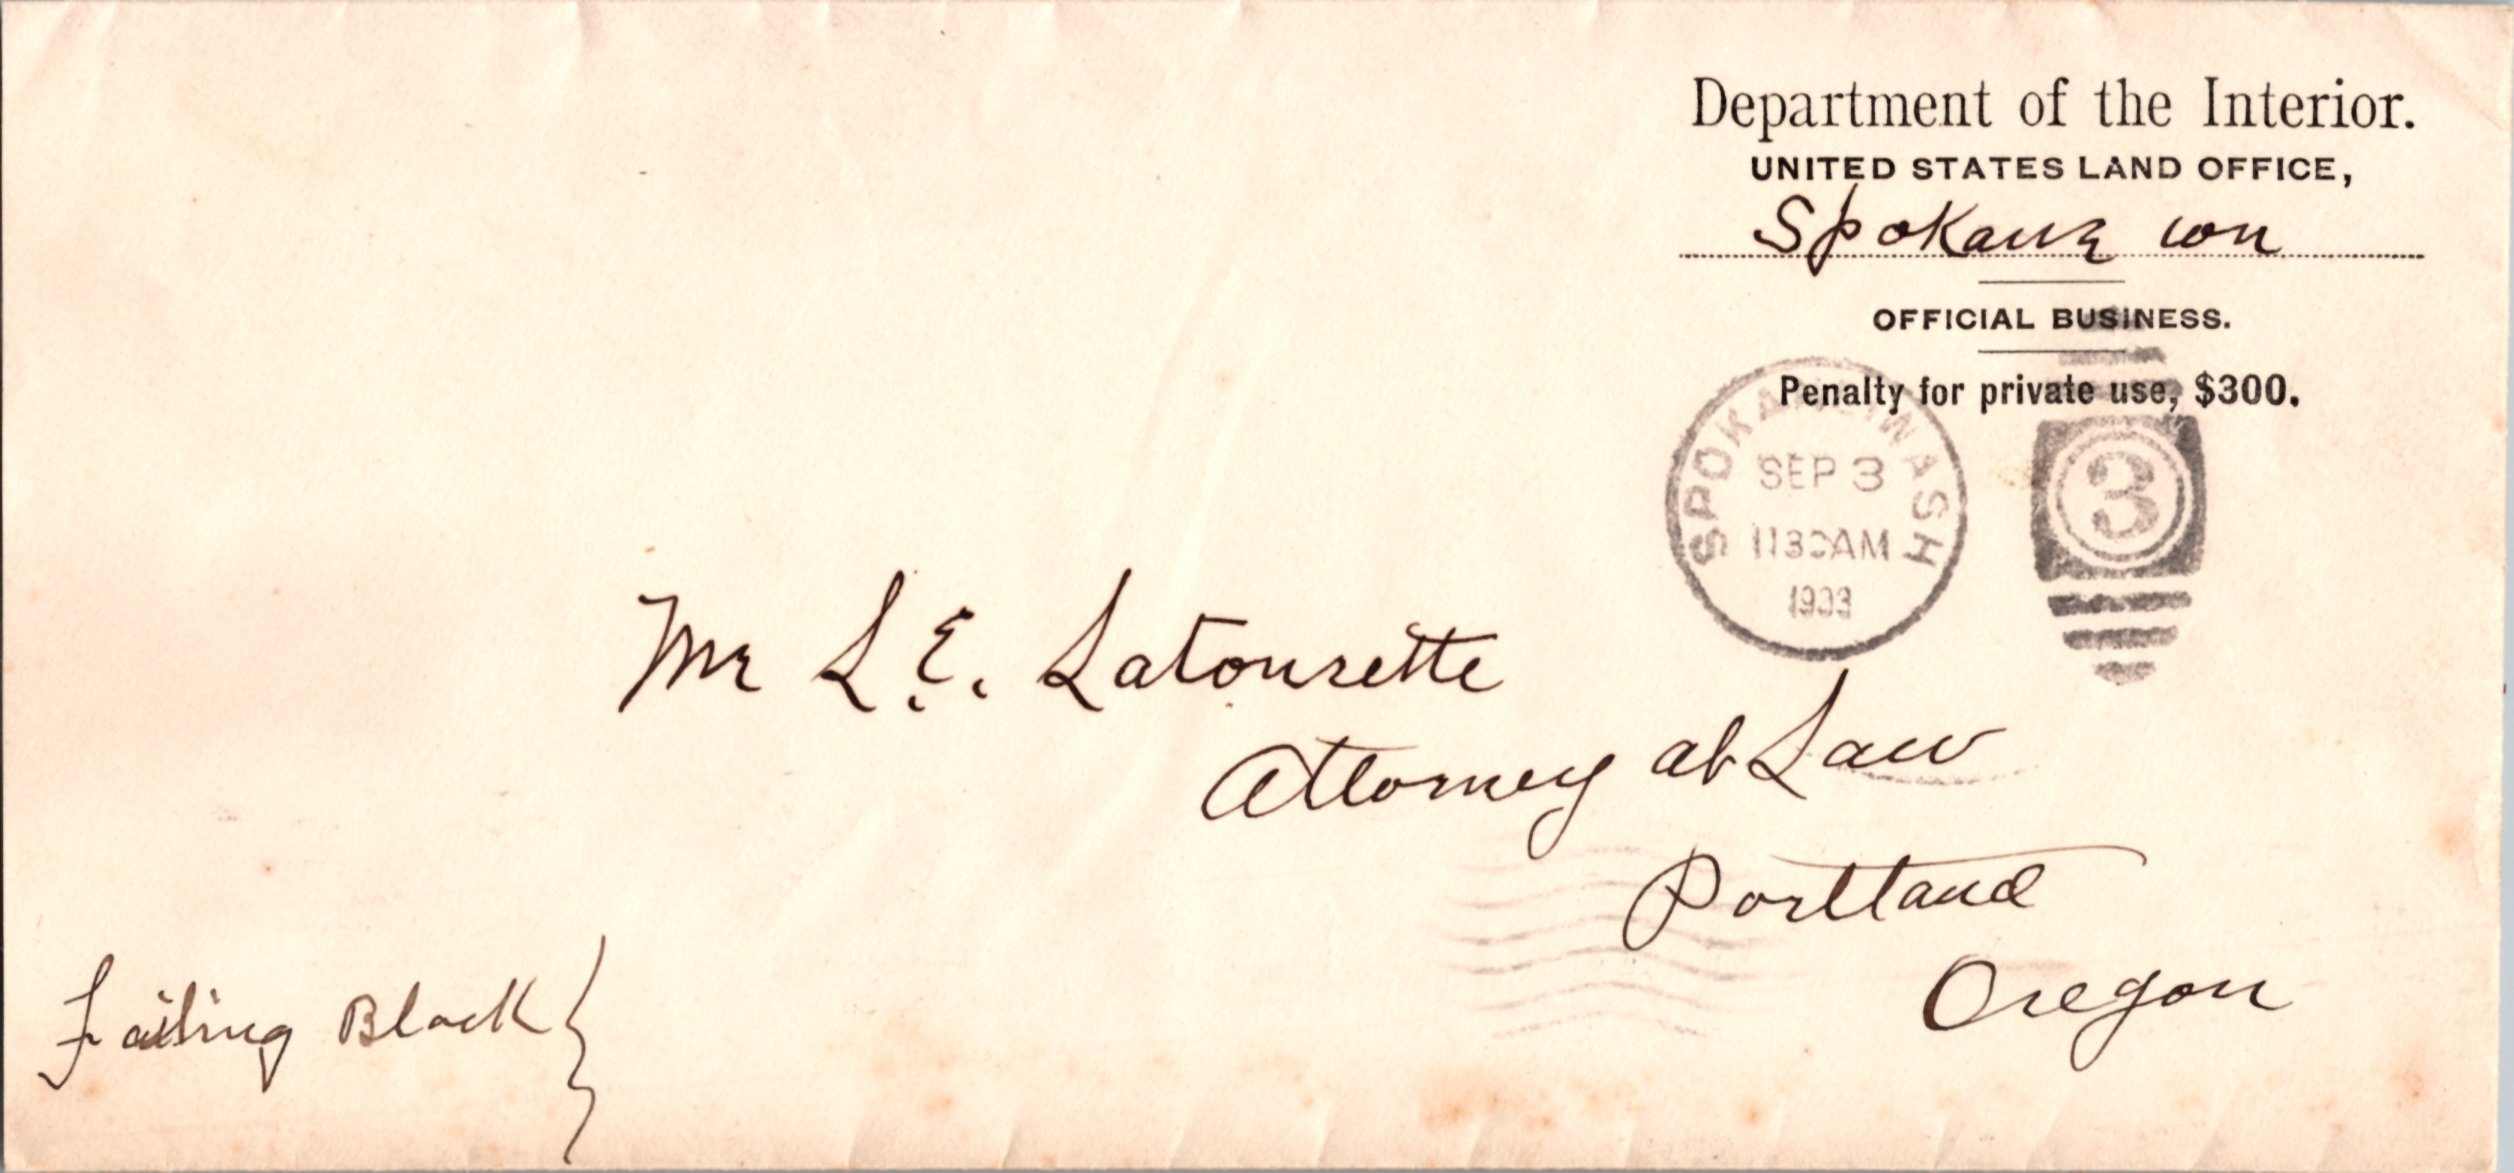 Department of the Interior.
UNITED STATES LAND OFFICE,
Spokane Wn
OFFICIAL BUSINESS.
Penalty for private use, $300.
SPOKANE, WASH
SEP 3
1130AM
1903
3
Mr L.E. Latourette
Attorney at Law
Portland
Oregon
Failing Block }